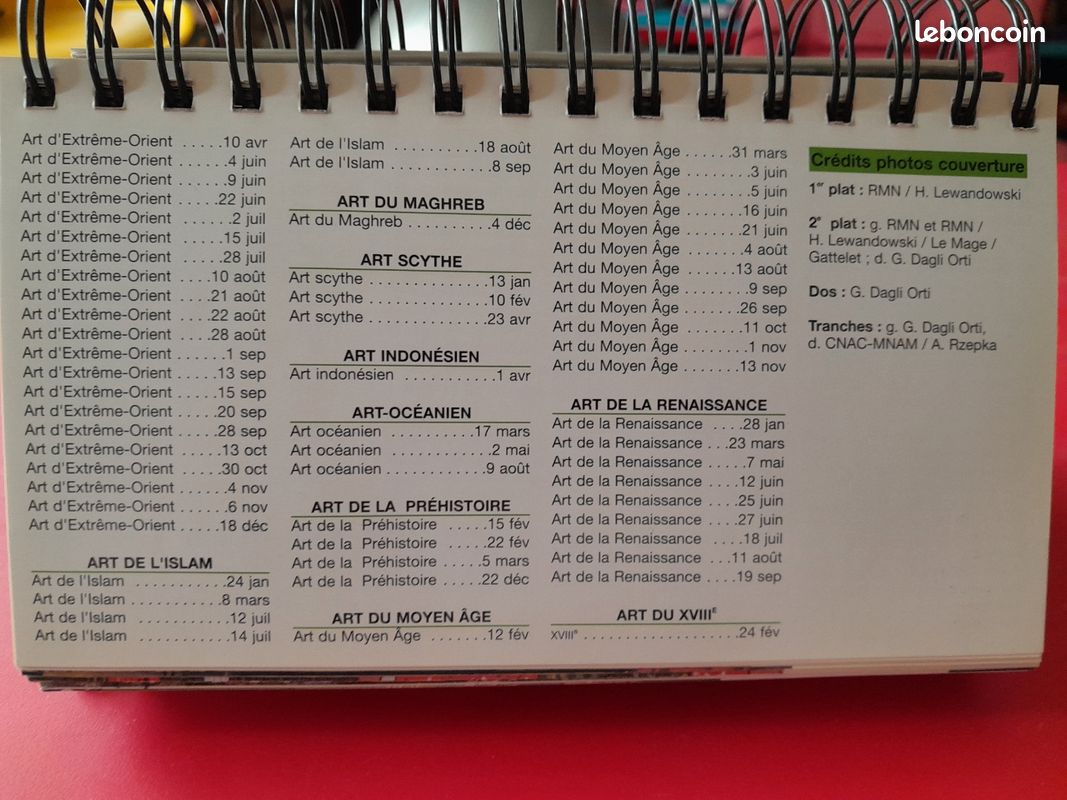 leboncoin
Art d'Extrême-Orient .....10 avr
Art d'Extrême-Orient ......4 juin
Art d'Extrême-Orient ......9 juin
Art d'Extrême-Orient .....22 juin
Art d'Extrême-Orient .......2 juil
Art d'Extrême-Orient .....15 juil
Art d'Extrême-Orient .....28 juil
Art d'Extrême-Orient ....10 août
Art d'Extrême-Orient ....21 août
Art d'Extrême-Orient ....22 août
Art d'Extrême-Orient ....28 août
Art d'Extrême-Orient ......1 sep
Art d'Extrême-Orient .....13 sep
Art d'Extrême-Orient .....15 sep
Art d'Extrême-Orient .....20 sep
Art d'Extrême-Orient .....28 sep
Art d'Extrême-Orient .....13 oct
Art d'Extrême-Orient .....30 oct
Art d'Extrême-Orient ......4 nov
Art d'Extrême-Orient ......6 nov
Art d'Extrême-Orient .....18 déc
ART DE L'ISLAM
Art de l'Islam ...........24 jan
Art de l'Islam ...........8 mars
Art de l'Islam ...........12 juil
Art de l'Islam ...........14 juil
Art de l'Islam ..........18 août
Art de l'Islam ............8 sep
ART DU MAGHREB
Art du Maghreb ..........4 déc
ART SCYTHE
Art scythe ..............13 jan
Art scythe ..............10 fév
Art scythe ..............23 avr
ART INDONÉSIEN
Art indonésien ...........1 avr
ART-OCÉANIEN
Art océanien ..........17 mars
Art océanien ............2 mai
Art océanien ............9 août
ART DE LA PRÉHISTOIRE
Art de la Préhistoire .....15 fév
Art de la Préhistoire .....22 fév
Art de la Préhistoire .....5 mars
Art de la Préhistoire .....22 déc
ART DU MOYEN ÂGE
Art du Moyen Âge .......12 fév
Art du Moyen Âge ......31 mars
Art du Moyen Âge ........3 juin
Art du Moyen Âge ........5 juin
Art du Moyen Âge .......16 juin
Art du Moyen Âge .......21 juin
Art du Moyen Âge .......4 août
Art du Moyen Âge ......13 août
Art du Moyen Âge ........9 sep
Art du Moyen Âge .......26 sep
Art du Moyen Âge .......11 oct
Art du Moyen Âge ........1 nov
Art du Moyen Âge .......13 nov
ART DE LA RENAISSANCE
Art de la Renaissance ....28 jan
Art de la Renaissance ...23 mars
Art de la Renaissance .....7 mai
Art de la Renaissance ....12 juin
Art de la Renaissance ....25 juin
Art de la Renaissance ....27 juin
Art de la Renaissance ....18 juil
Art de la Renaissance ...11 août
Art de la Renaissance ....19 sep
ART DU XVIIIE
XVIIIe ....................24 fév
Crédits photos couverture
1er plat : RMN / H. Lewandowski
2e plat : g. RMN et RMN /
H. Lewandowski / Le Mage /
Gattelet ; d. G. Dagli Orti
Dos : G. Dagli Orti
Tranches : g. G. Dagli Orti,
d. CNAC-MNAM / A. Rzepka